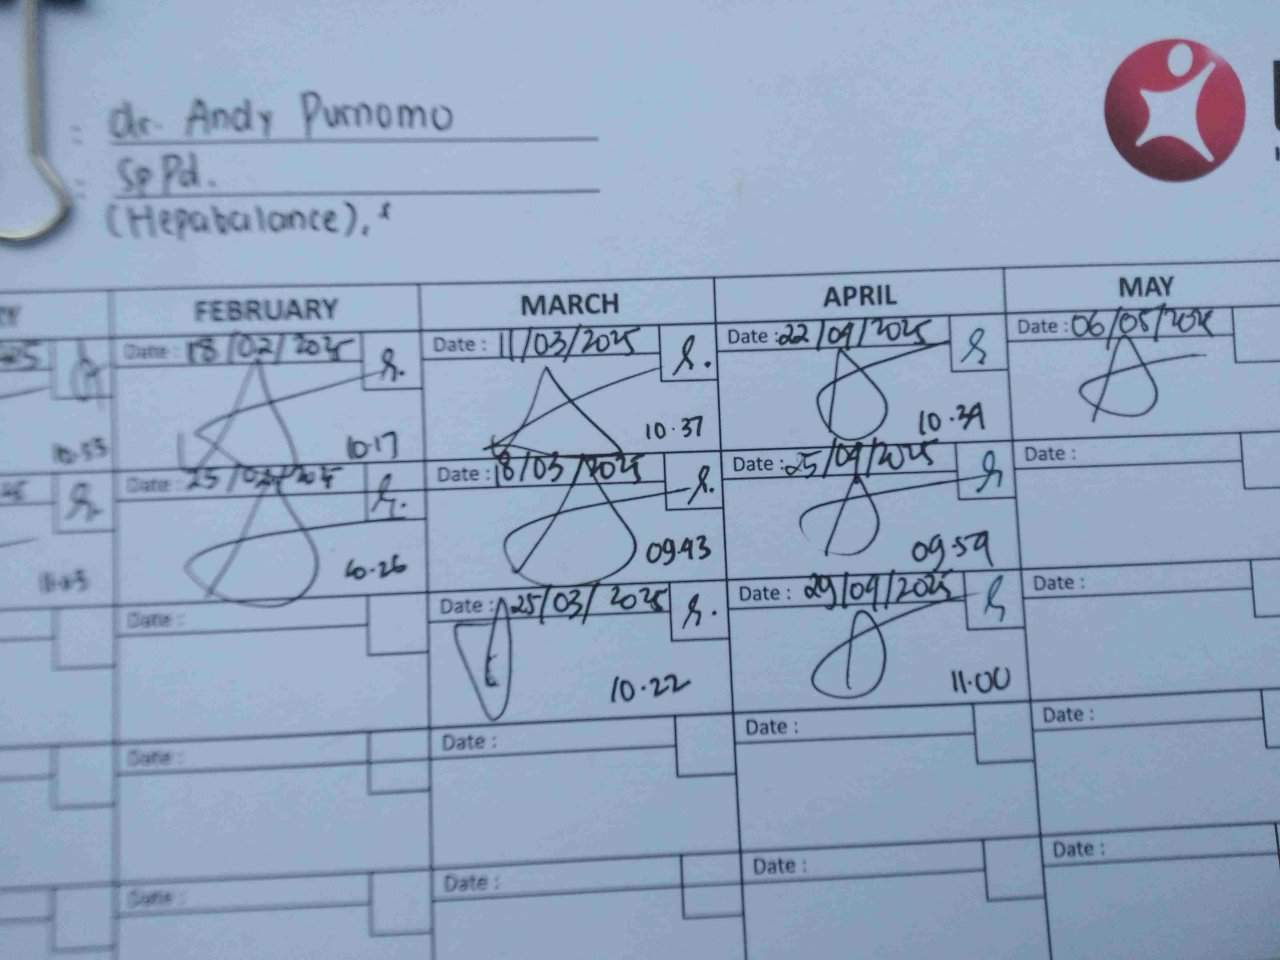 : dr. Andy Purnomo
: SpPd.
(Hepabalance),
FEBRUARY MARCH APRIL MAY
Date : 18/02/2025 Date : 11/03/2025 Date : 22/04/2025 Date : 06/05/2025
10.55 10.17 10.37 10.34
Date : 25/02/2025 Date : 18/03/2025 Date : 25/04/2025 Date :
11.05 10.26 09.43 09.59
Date : Date : 25/03/2025 Date : 29/04/2025 Date :
10.22 11.00
Date : Date : Date : Date :
Date : Date : Date : Date :